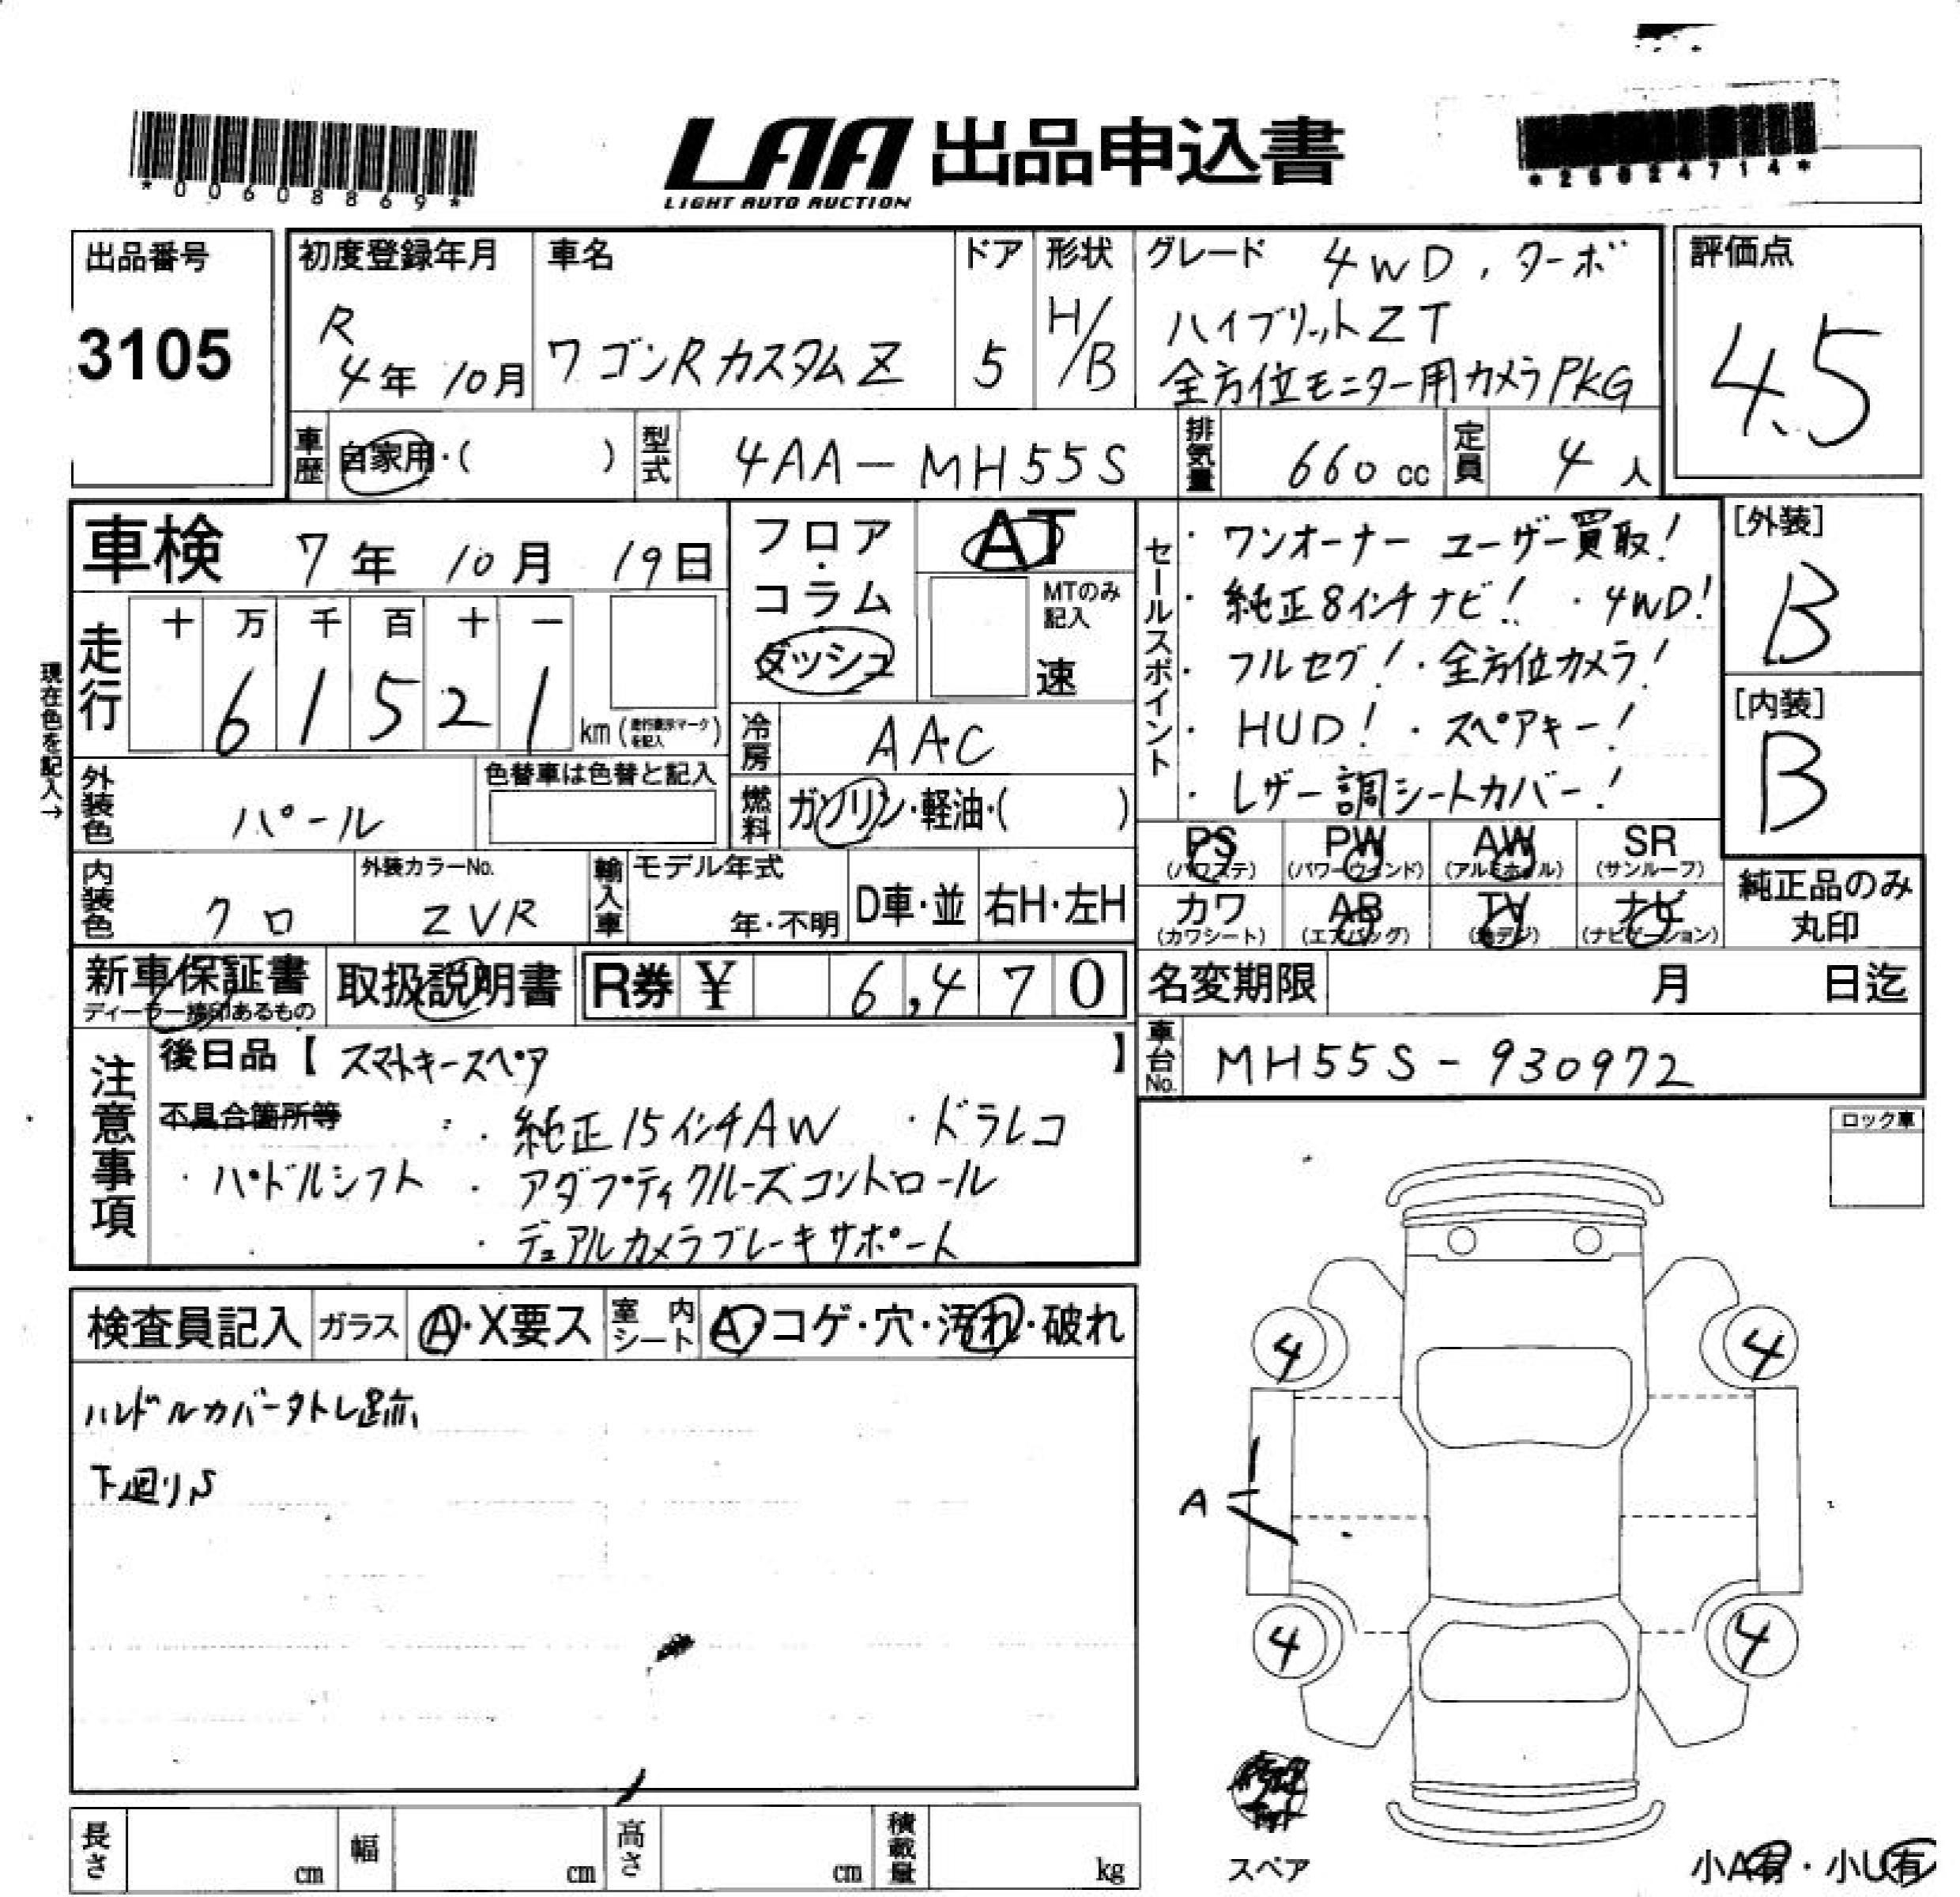 *00608869*
LAA 出品申込書
LIGHT AUTO AUCTION
*25024714*
出品番号
3105
初度登録年月
R
4年 10月
車名
ワゴンRカスタムZ
ドア
5
形状
H/B
グレード 4WD、ターボ
ハイブリットZT
全方位モニター用カメラPKG
評価点
4.5
車歴
自家用・( )
型式
4AA-MH55S
排気量
660 cc
定員
4 人
車検 7年 10月 19日
フロア・コラム
ダッシュ
AT
MTのみ記入
速
セールスポイント
・ワンオーナー ユーザー買取!
・純正8インチナビ! ・4WD!
・フルセグ!・全方位カメラ!
・HUD!・スペアキー!
・レザー調シートカバー!
[外装]
B
[内装]
B
現在色を記入→
走行
十 万 千 百 十 一
6 1 5 2 1
km(走行表示マークを記入)
冷房
AAC
燃料
ガソリン・軽油・( )
外装色
パール
色替車は色替と記入
内装色
クロ
外装カラーNo.
ZVR
輸入車
モデル年式
年・不明
D車・並
右H・左H
PS (パワステ)
PW (パワーウィンド)
AW (アルミホイル)
SR (サンルーフ)
カワ (カワシート)
AB (エアバッグ)
TV (地デジ)
ナビ (ナビゲーション)
純正品のみ丸印
新車保証書
ディーラー捺印あるもの
取扱説明書
R券 ¥ 6,470
名変期限 月 日迄
車台No.
MH55S-930972
注意事項
後日品【スマートキースペア】
不具合箇所等
・純正15インチAW ・ドラレコ
・パドルシフト ・アダプティクルーズコントロール
・デュアルカメラブレーキサポート
ロック車
検査員記入
ガラス
A・X要ス
室内シート
A・コゲ・穴・汚れ・破れ
ハンドルカバータトレ跡、
下廻りS
4 4
A
4 4
スペア
小A有・小U有
長さ cm
幅 cm
高さ cm
積載量 kg